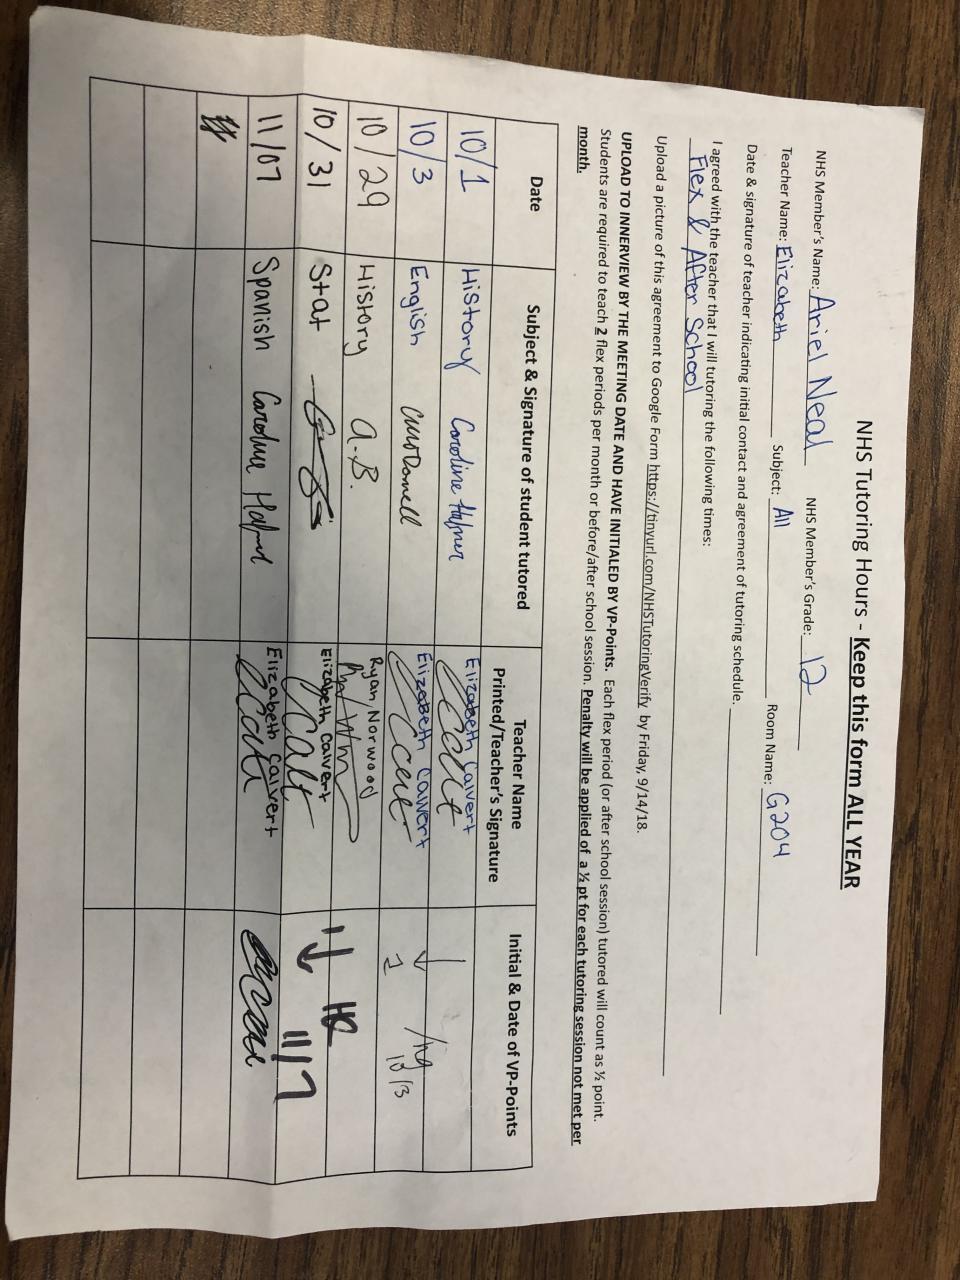 NHS Tutoring Hours - Keep this form ALL YEAR
NHS Member's Name: Ariel Neal NHS Member's Grade: 12
Teacher Name: Elizabeth Subject: All Room Name: G204
Date & signature of teacher indicating initial contact and agreement of tutoring schedule.
I agreed with the teacher that I will tutoring the following times:
Flex & After School
Upload a picture of this agreement to Google Form https://tinyurl.com/NHSTutoringVerify by Friday, 9/14/18.
UPLOAD TO INNERVIEW BY THE MEETING DATE AND HAVE INITIALED BY VP-Points. Each flex period (or after school session) tutored will count as ½ point.
Students are required to teach 2 flex periods per month or before/after school session. Penalty will be applied of a ½ pt for each tutoring session not met per
month.
Date Subject & Signature of student tutored Teacher Name Printed/Teacher's Signature Initial & Date of VP-Points
10/1 History Caroline Elizabeth Calvert
10/3 English Elizabeth Calvert 1 10/3
10/29 History a.B. Ryan Norwood
10/31 Stat Elizabeth Calvert 11/7
11/07 Spanish Caroline Elizabeth Calvert